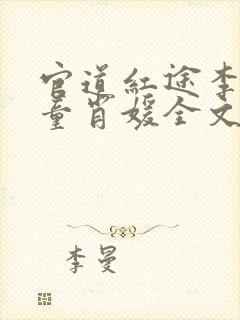 官道红途李
童肖媛全文
李曼